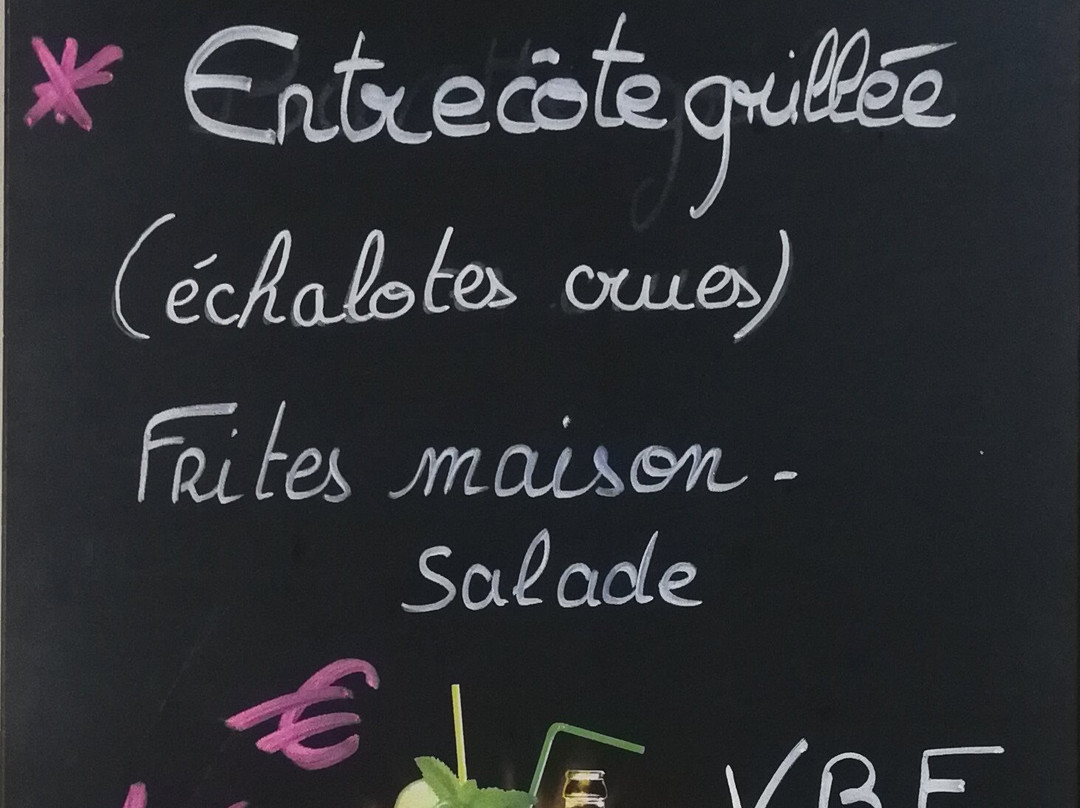 * Entrecôte grillée
(échalotes crues)
Frites maison -
Salade
€
VBF